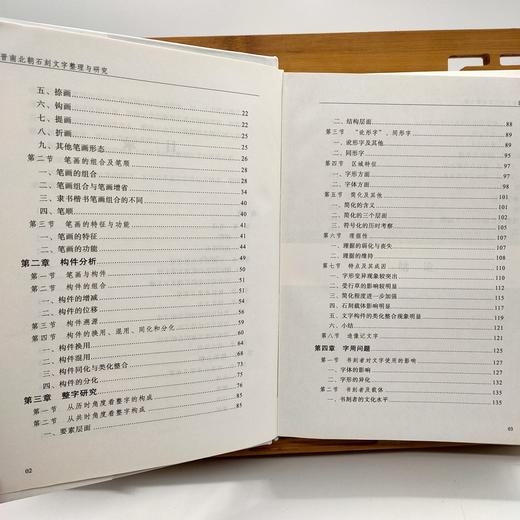 晋南北朝石刻文字整理与研究
五、捺画
六、钩画 22
七、提画 22
八、折画 24
九、其他笔画形态 25
第二节 笔画的组合及笔顺 26
一、笔画的组合 26
二、笔画组合与笔画增省
三、隶书楷书笔画组合的不同
四、笔顺
第三节 笔画的特征与功能
一、笔画的特征 41
二、笔画的功能
第二章 构件分析 49
第一节 笔画与构件
第二节 构件的组合 50
一、构件的增减
二、构件的位移
第三节 构件溯源
第四节 构件的换用、混用、同化和分化
一、构件换用
二、构件混用
三、构件同化与类化整合
四、构件的分化
第三章 整字研究 76
第一节 从历时角度看整字的构成
第二节 从共时角度看整字构成 85
一、要素层面 85
02
二、结构层面 88
第三节 “讹形字”、同形字 89
一、讹形字及其他 89
二、同形字 95
第四节 区域特征 97
一、字形方面 97
二、字体方面
第五节 简化及其他
一、简化的含义
二、简化的三个层面
三、符号化的历时考察
第六节 理据性
一、理据的弱化与丧失
二、理据的维持
第七节 特点及其成因
一、字形变异现象较突出
二、受行草的影响较明显
三、简化程度进一步加强
四、石刻载体影响明显
五、文字构件的类化整合现象明显
六、小结
第八节 造像记文字
第四章 字用问题
第一节 书刻者对文字使用的影响
一、字体的影响
二、字形的异化
第二节 书刻者及载体
一、书刻者的文化水平 135
03